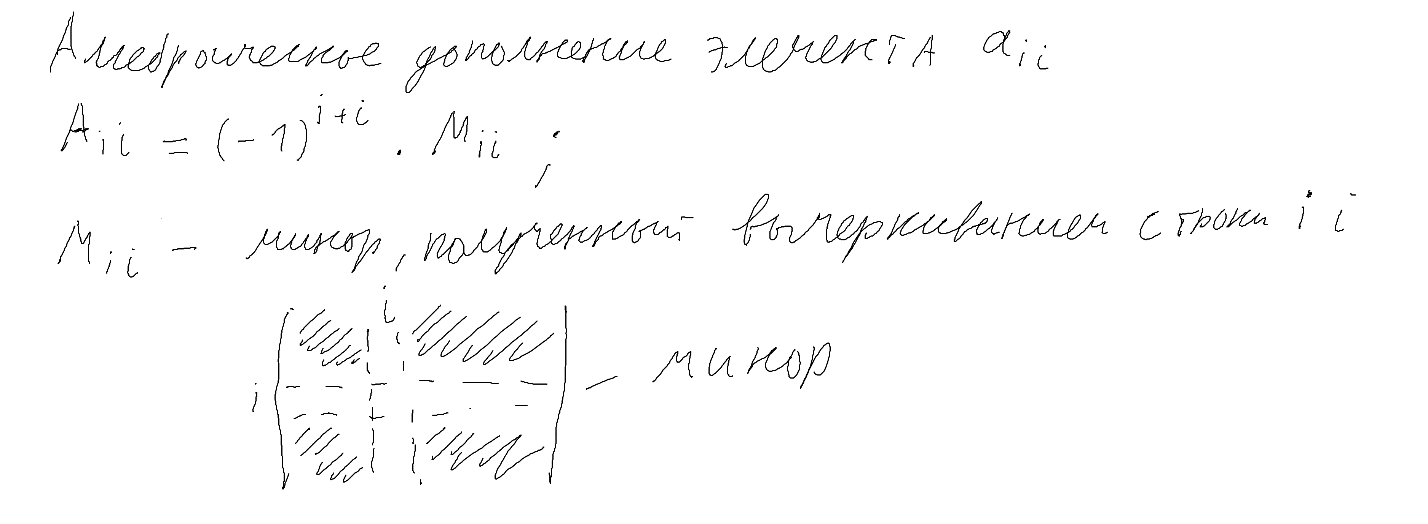 Алгебраическое дополнение элемента aᵢᵢ
Aᵢᵢ = (-1)ⁱ⁺ⁱ · Mᵢᵢ ;
Mᵢᵢ – минор, полученный вычеркиванием строки i i
i
i
– минор